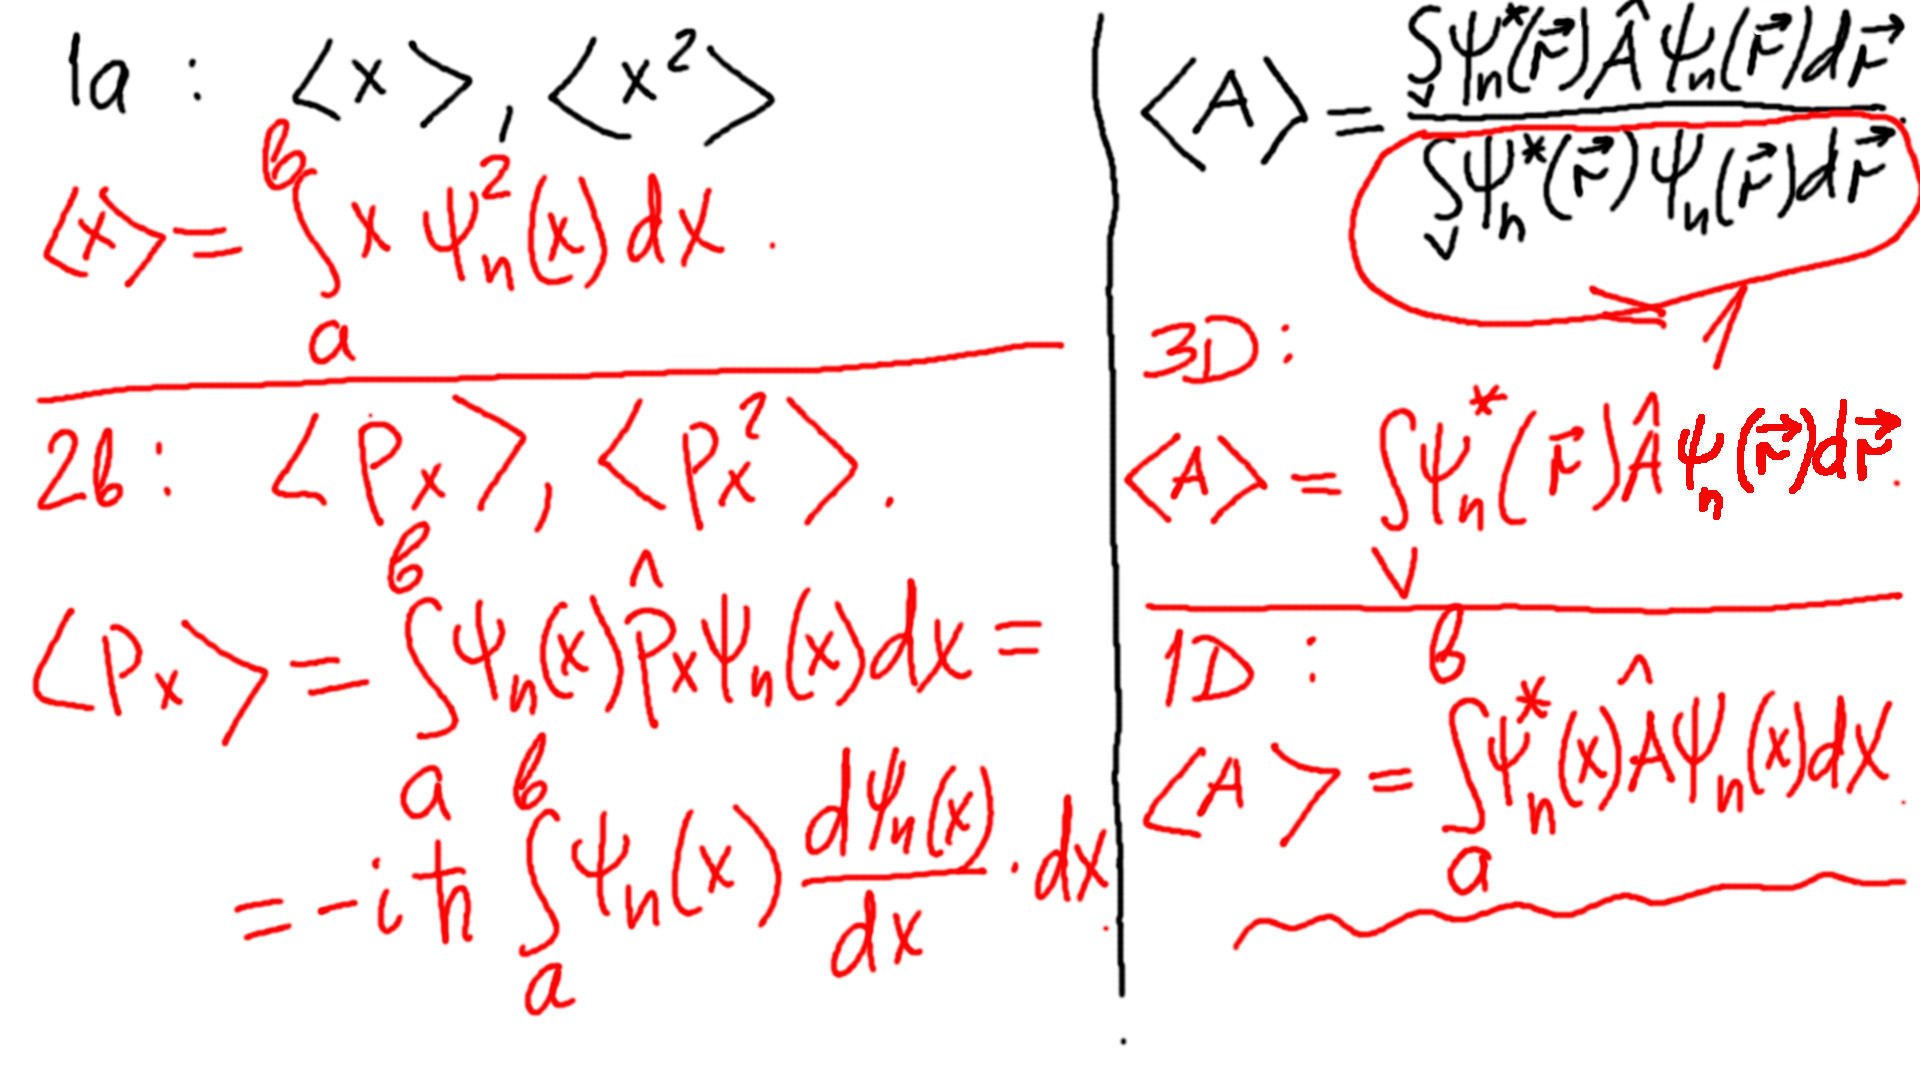 1a : <x>, <x²>
<x> = ∫ₐᵇ x ψₙ²(x) dx.
2b : <pₓ>, <pₓ²>.
<pₓ> = ∫ₐᵇ ψₙ(x) p̂ₓ ψₙ(x) dx =
= -iħ ∫ₐᵇ ψₙ(x) dψₙ(x)/dx · dx.
<A> = ∫ᵥ ψₙ*(r⃗) Â ψₙ(r⃗) dr⃗ / ∫ᵥ ψₙ*(r⃗) ψₙ(r⃗) dr⃗.
= 1
3D :
<A> = ∫ᵥ ψₙ*(r⃗) Â ψₙ(r⃗) dr⃗.
1D :
<A> = ∫ₐᵇ ψₙ*(x) Â ψₙ(x) dx.